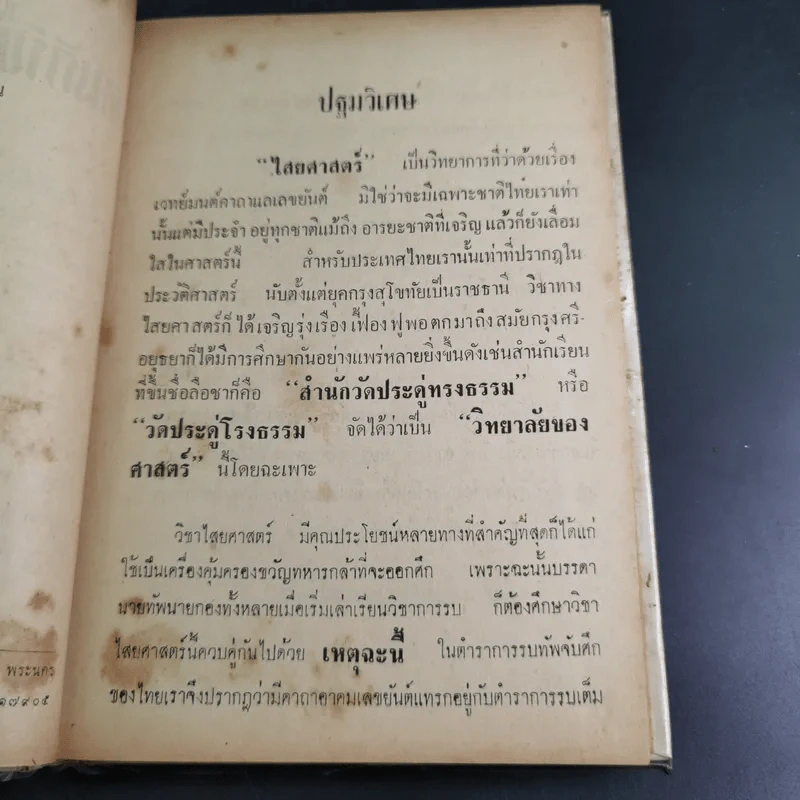 ปฐมวิเศษ
“ไสยศาสตร์” เป็นวิทยาการที่ว่าด้วยเรื่อง
เวทย์มนต์คาถาและเลขยันต์ มิใช่ว่าจะมีเฉพาะชาติไทยเราเท่า
นั้นแต่มีประจำ อยู่ทุกชาติแม้ถึง อารยะชาติที่เจริญ แล้วก็ยังเลื่อม
ใสในศาสตร์นี้ สำหรับประเทศไทยเรานั้นเท่าที่ปรากฏใน
ประวัติศาสตร์ นับตั้งแต่ยุคกรุงสุโขทัยเป็นราชธานี วิชาทาง
ไสยศาสตร์ก็ ได้ เจริญ รุ่ง เรือง เฟื่อง ฟู พอ ตก มา ถึง สมัย กรุง ศรี-
อยุธยาก็ได้มีการศึกษากันอย่างแพร่หลายยิ่งขึ้นดังเช่นสำนักเรียน
ที่ขึ้นชื่อลือชาก็คือ “สำนักวัดประดู่ทรงธรรม” หรือ
“วัดประดู่โรงธรรม” จัดได้ว่าเป็น “วิทยาลัยของ
ศาสตร์” นี้โดยฉะเพาะ
วิชาไสยศาสตร์ มีคุณประโยชน์หลายทางที่สำคัญที่สุดก็ได้แก่
ใช้เป็นเครื่องคุ้มครองขวัญทหารกล้าที่จะออกศึก เพราะฉะนั้นบรรดา
นายทัพนายกองทั้งหลายเมื่อเริ่มเล่าเรียนวิชาการรบ ก็ต้องศึกษาวิชา
ไสยศาสตร์นี้ควบคู่กันไปด้วย เหตุฉะนี้ ในตำราการรบทัพจับศึก
ของไทยเราจึงปรากฏว่ามีคาถาอาคมเลขยันต์แทรกอยู่กับตำราการรบเต็ม
พระนคร
๑๗๙๐๕